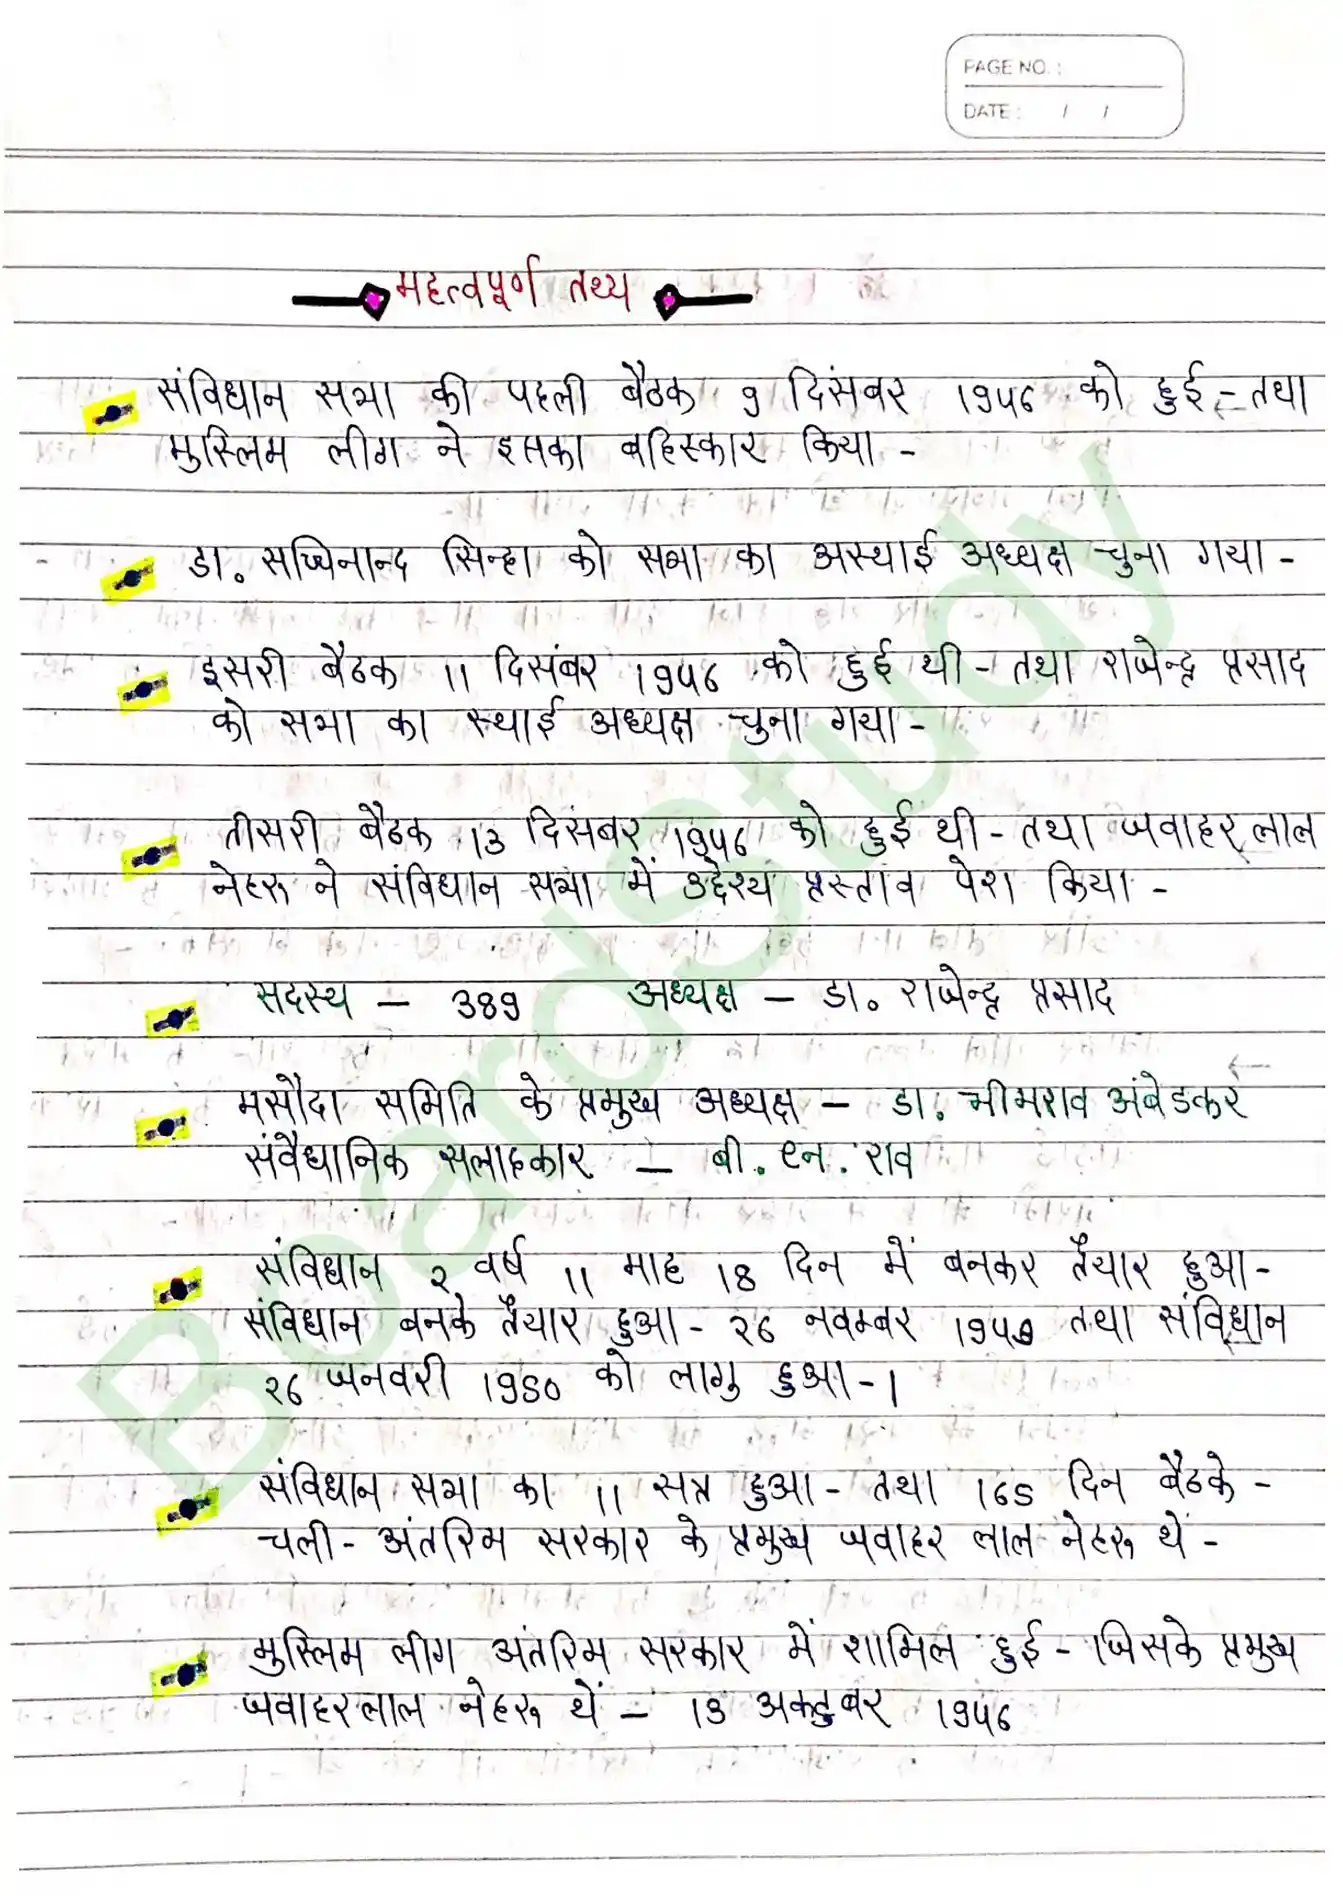 PAGE NO. :
DATE : / /
महत्वपूर्ण तथ्य
संविधान सभा की पहली बैठक 9 दिसंबर 1946 को हुई - तथा
मुस्लिम लीग ने इसका बहिस्कार किया -
डा. सच्चिनान्द सिन्हा को सभा का अस्थाई अध्यक्ष चुना गया -
दुसरी बैठक 11 दिसंबर 1946 को हुई थी - तथा राजेन्द्र प्रसाद
को सभा का स्थाई अध्यक्ष चुना गया -
तीसरी बैठक 13 दिसंबर 1946 को हुई थी - तथा जवाहर लाल
नेहरू ने संविधान सभा में उद्देश्य प्रस्ताव पेश किया -
सदस्य – 389 अध्यक्ष – डा. राजेन्द्र प्रसाद
मसौदा समिति के प्रमुख अध्यक्ष – डा. भीमराव अंबेडकर
संवैधानिक सलाहकार – बी. एन. राव
संविधान 2 वर्ष 11 माह 18 दिन में बनकर तैयार हुआ -
संविधान बनके तैयार हुआ - 26 नवम्बर 1949 तथा संविधान
26 जनवरी 1950 को लागु हुआ - ।
संविधान सभा का 11 सत्र हुआ - तथा 165 दिन बैठके -
चली - अंतरिम सरकार के प्रमुख जवाहर लाल नेहरू थे -
मुस्लिम लीग अंतरिम सरकार में शामिल हुई - जिसके प्रमुख
जवाहरलाल नेहरू थें – 13 अक्टुबर 1946
BoardStudy